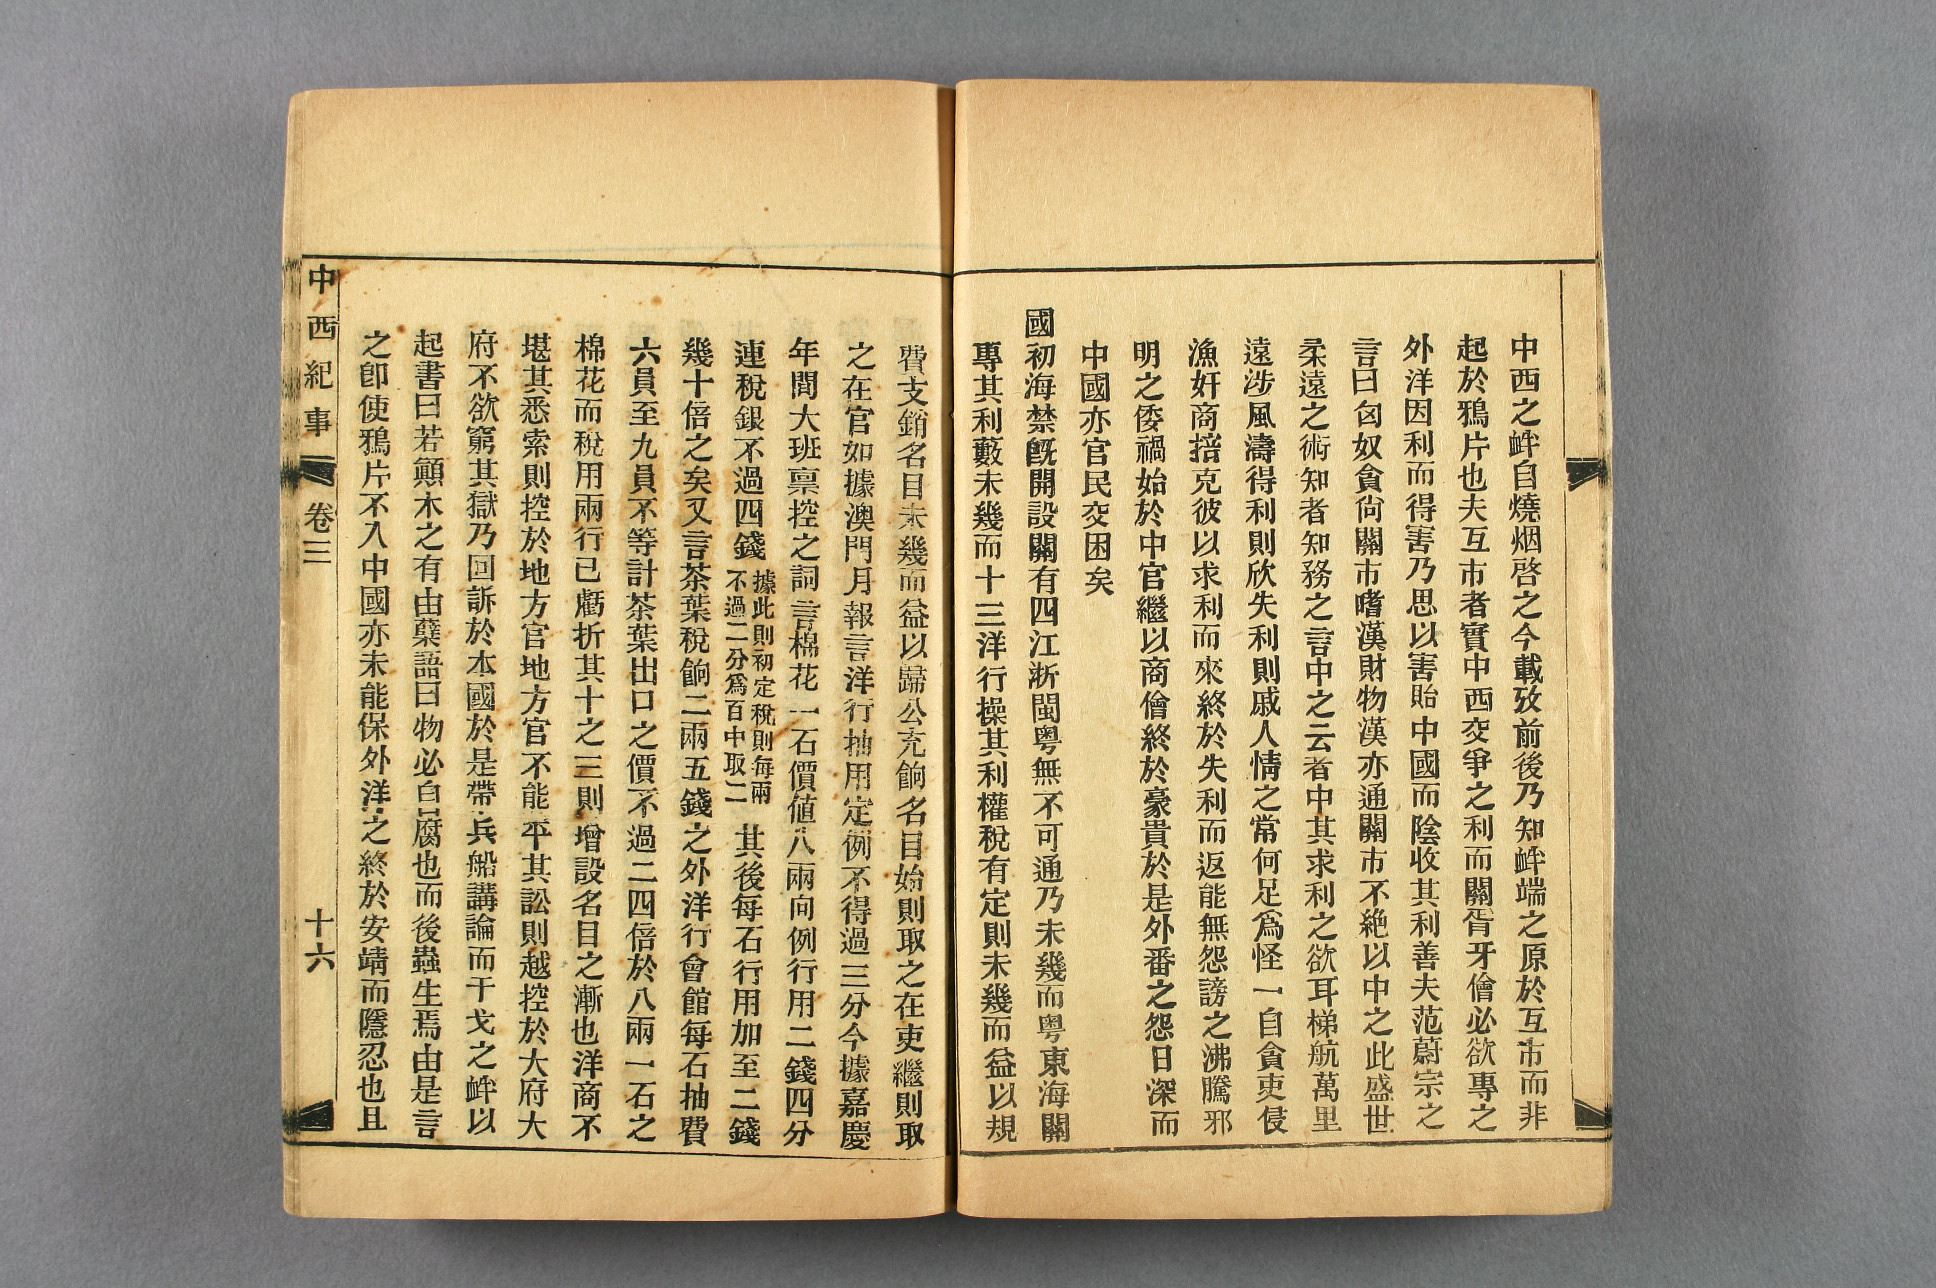 中西之衅自燒烟啓之今載攷前後乃知衅端之原於互市而非
起於鴉片也夫互市者實中西交爭之利而關胥牙儈必欲專之
外洋因利而得害乃思以害貽中國而陰收其利善夫范蔚宗之
言曰匈奴貪尙關市嗜漢財物漢亦通關市不絶以中之此盛世
柔遠之術知者知務之言中之云者中其求利之欲耳梯航萬里
遠涉風濤得利則欣失利則戚人情之常何足爲怪一自貪吏侵
漁奸商掊克彼以求利而來終於失利而返能無怨謗之沸騰邪
明之倭禍始於中官繼以商儈終於豪貴於是外番之怨日深而
中國亦官民交困矣
國初海禁旣開設關有四江浙閩粤無不可通乃未幾而粤東海關
專其利藪未幾而十三洋行操其利權稅有定則未幾而益以規
費支銷名目未幾而益以歸公充餉名目始則取之在吏繼則取
之在官如據澳門月報言洋行抽用定例不得過三分今據嘉慶
年間大班禀控之詞言棉花一石價値八兩向例行用二錢四分
連稅銀不過四錢據此則初定稅則每兩不過二分爲百中取二其後每石行用加至二錢
幾十倍之矣又言茶葉稅餉二兩五錢之外洋行會館每石抽費
六員至九員不等計茶葉出口之價不過二四倍於八兩一石之
棉花而稅用兩行已虧折其十之三則增設名目之漸也洋商不
堪其悉索則控於地方官地方官不能平其訟則越控於大府大
府不欲窮其獄乃回訴於本國於是帶兵船講論而干戈之衅以
起書曰若顚木之有由蘖語曰物必自腐也而後蟲生焉由是言
之卽使鴉片不入中國亦未能保外洋之終於安靖而隱忍也且
中西紀事 卷三 十六